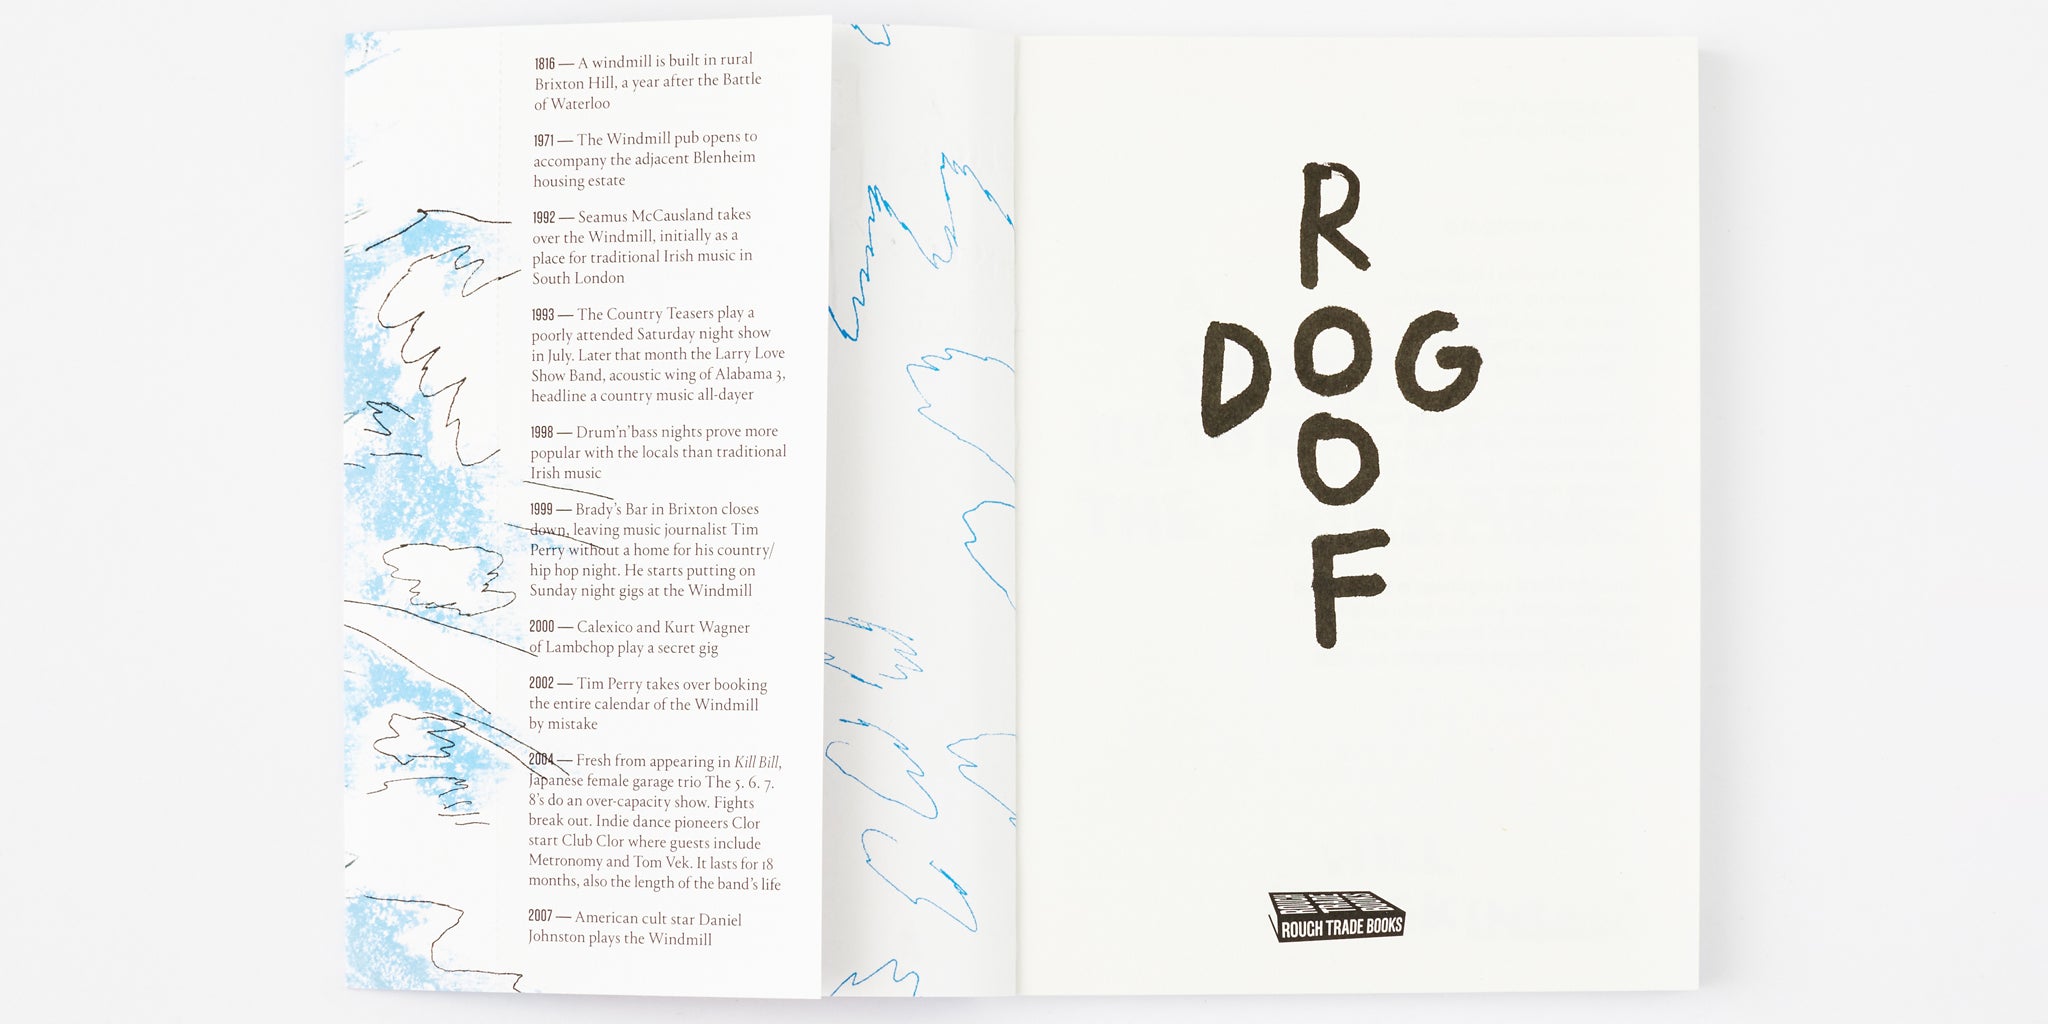 1816 — A windmill is built in rural
Brixton Hill, a year after the Battle
of Waterloo
1971 — The Windmill pub opens to
accompany the adjacent Blenheim
housing estate
1992 — Seamus McCausland takes
over the Windmill, initially as a
place for traditional Irish music in
South London
1993 — The Country Teasers play a
poorly attended Saturday night show
in July. Later that month the Larry Love
Show Band, acoustic wing of Alabama 3,
headline a country music all-dayer
1998 — Drum’n’bass nights prove more
popular with the locals than traditional
Irish music
1999 — Brady’s Bar in Brixton closes
down, leaving music journalist Tim
Perry without a home for his country/
hip hop night. He starts putting on
Sunday night gigs at the Windmill
2000 — Calexico and Kurt Wagner
of Lambchop play a secret gig
2002 — Tim Perry takes over booking
the entire calendar of the Windmill
by mistake
2004 — Fresh from appearing in Kill Bill,
Japanese female garage trio The 5. 6. 7.
8’s do an over-capacity show. Fights
break out. Indie dance pioneers Clor
start Club Clor where guests include
Metronomy and Tom Vek. It lasts for 18
months, also the length of the band’s life
2007 — American cult star Daniel
Johnston plays the Windmill
R
DOG
O
F
ROUGH TRADE BOOKS